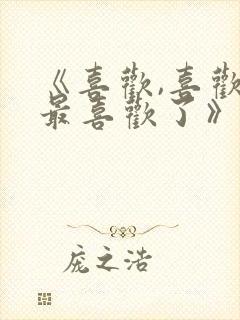 《喜歡,喜歡
最喜歡了》
庞之浩